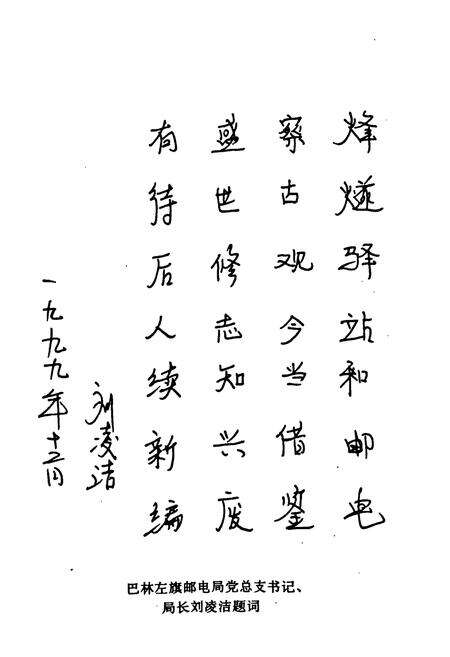 烽燧驿站和邮电
察古观今当借鉴
盛世修志知兴废
有待后人续新编
刘凌洁
一九九九年十二月
巴林左旗邮电局党总支书记、
局长刘凌洁题词